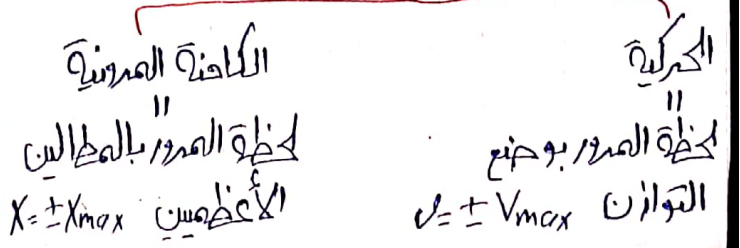 الحركية
=
لحظة المرور بوضع
التوازن v = ± Vmax
الكامنة المرونية
=
لحظة المرور بالمطالين
الأعظمين X = ± Xmax